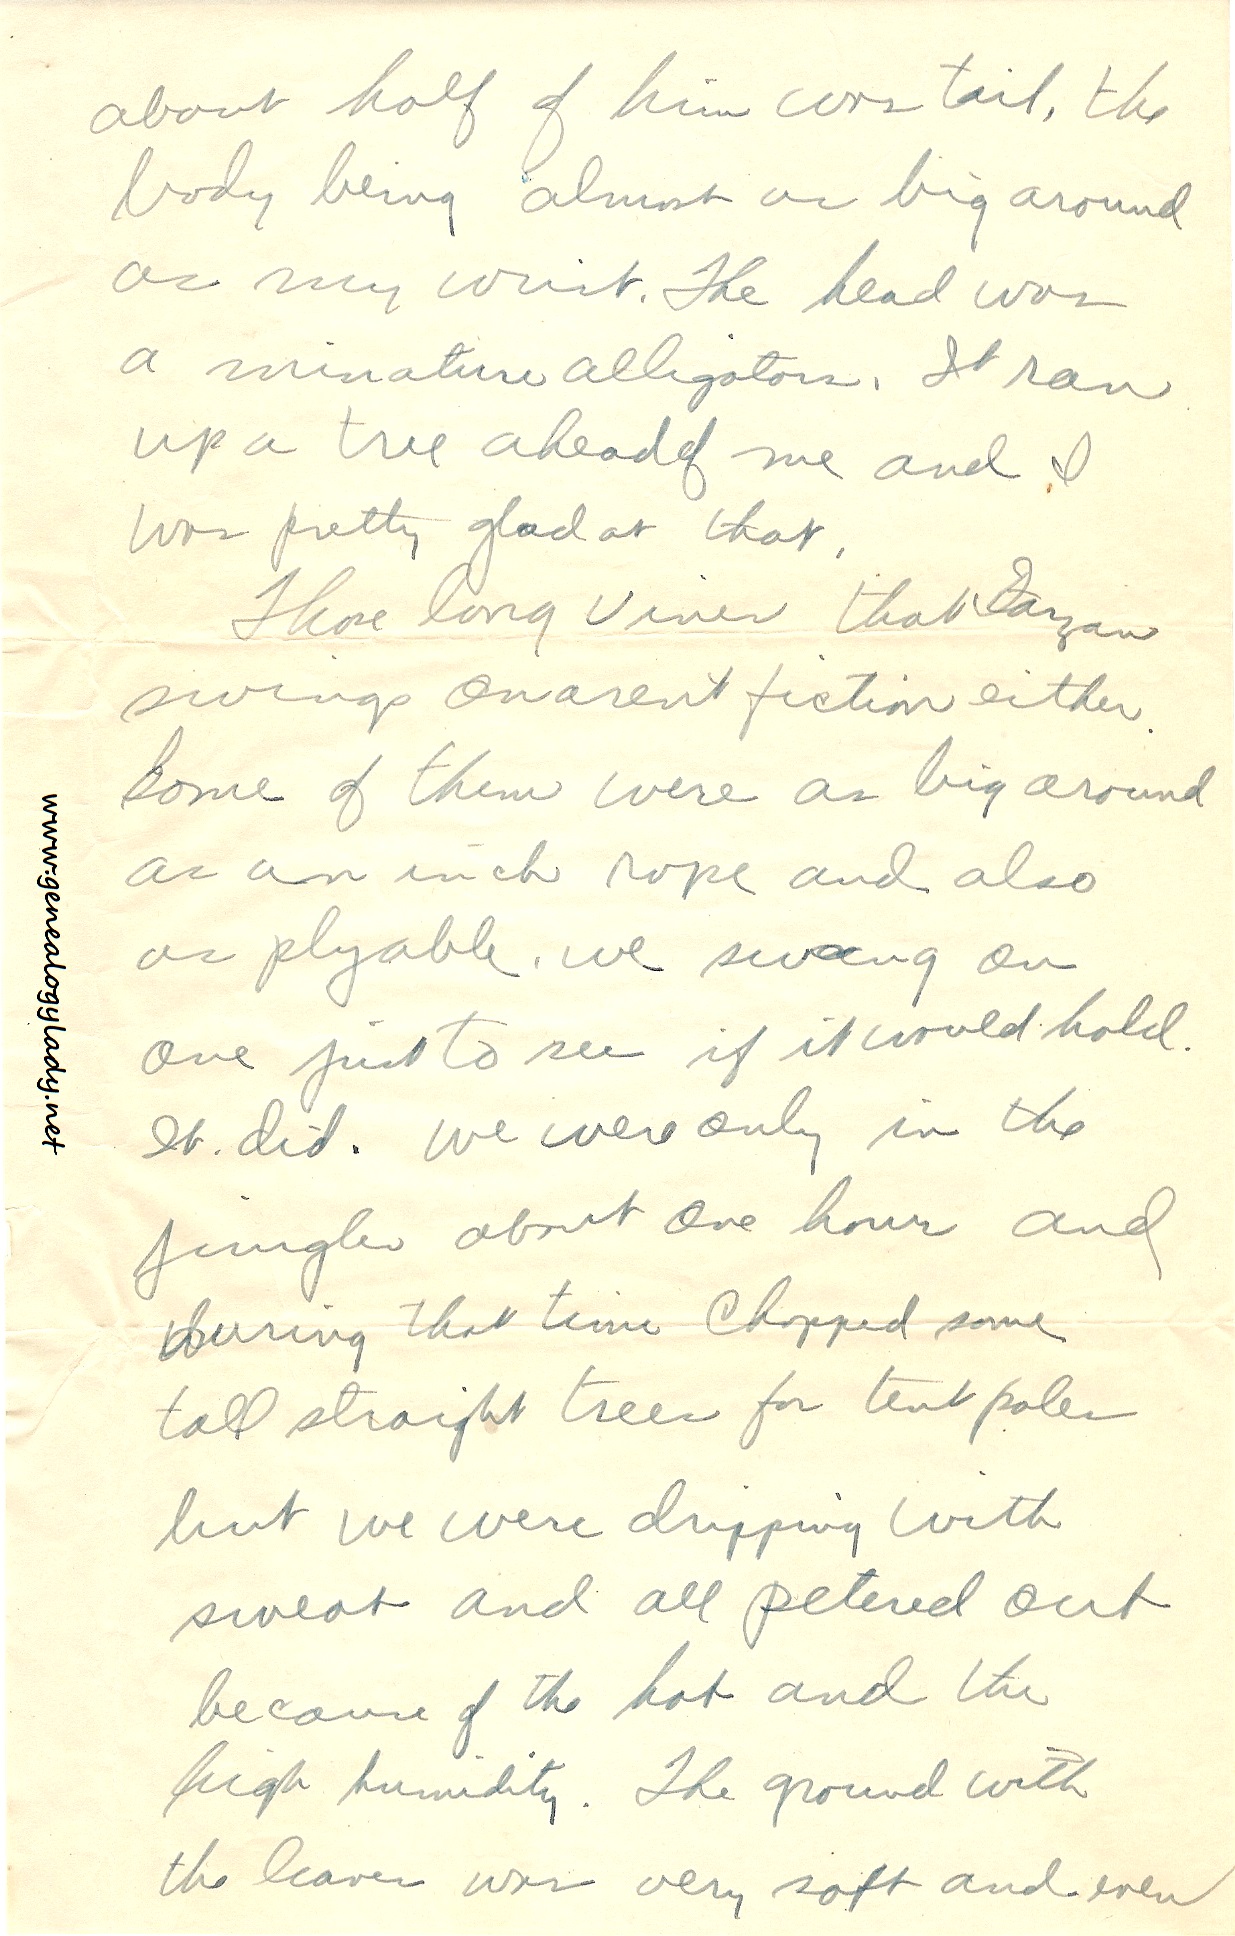 about half of him was tail, the
body being almost as big around
as my wrist. The head was
a minature alligators. It ran
up a tree ahead of me and I
was pretty glad at that.
Those long vines that Tarzan
swings on arent fiction either.
Some of them were as big around
as an inch rope and also
as plyable. we swung on
one just to see if it would hold.
It did. We were only in the
jungle about one hour and
during that time Chopped some
tall straight trees for tent poles
but we were dripping with
sweat and all petered out
because of the hot and the
high humidity. The ground with
the leaves was very soft and even
www.genealogylady.net